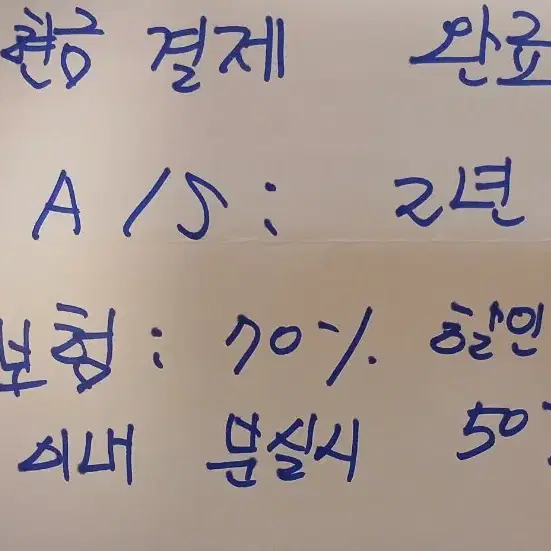 현금 결제 완료
A/S: 2년
보험: 70%. 할인
이내 분실시 50%